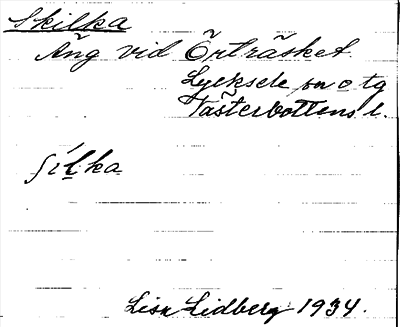 Skilka
Äng vid Örträsket
Lycksele sn o tg
Västerbottens l.
ʃílka
Lisa Lidberg 1934.